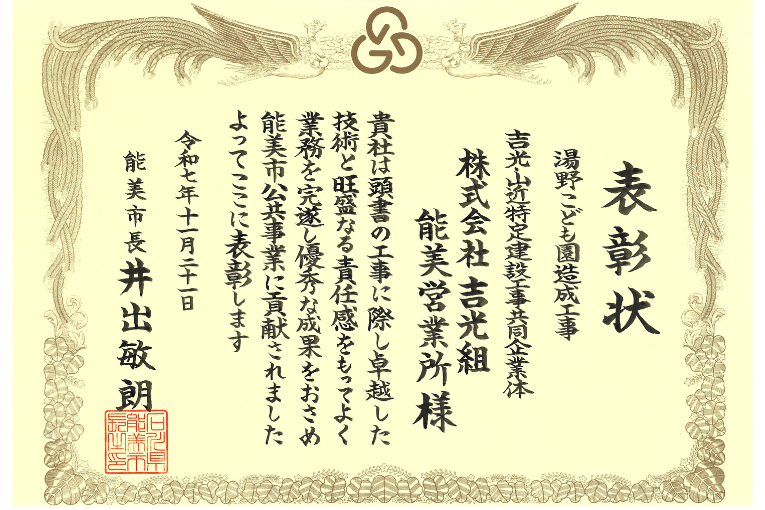 表彰状
湯野こども園造成工事
吉光・山近特定建設工事共同企業体
株式会社 吉光組
能美営業所 様
貴社は頭書の工事に際し卓越した
技術と旺盛なる責任感をもってよく
業務を完遂し優秀な成果をおさめ
能美市公共事業に貢献されました
よってここに表彰します
令和七年十一月二十一日
能美市長 井出敏朗
石川県能美市長之印